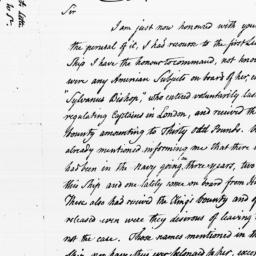 Sir
I am just now honoured with you
the perusal of it, I had recourse to the first Lie
Ship I have the honour to command, not know
were any American Subjects on board of her, e
"Sylvanus Bishop," who entered voluntarily last
regulating Captains in London, and recived th
bounty amounting to Thirty odd Pounds.
already mentioned informing me that there
had been in the Navy going three years, two
this Ship and one lately come on board from
These also had recived the King's bounty and
released even were they desirous of leaving
not the case. Those names mentioned in th
Ship nor have they ever belonged to her, excep